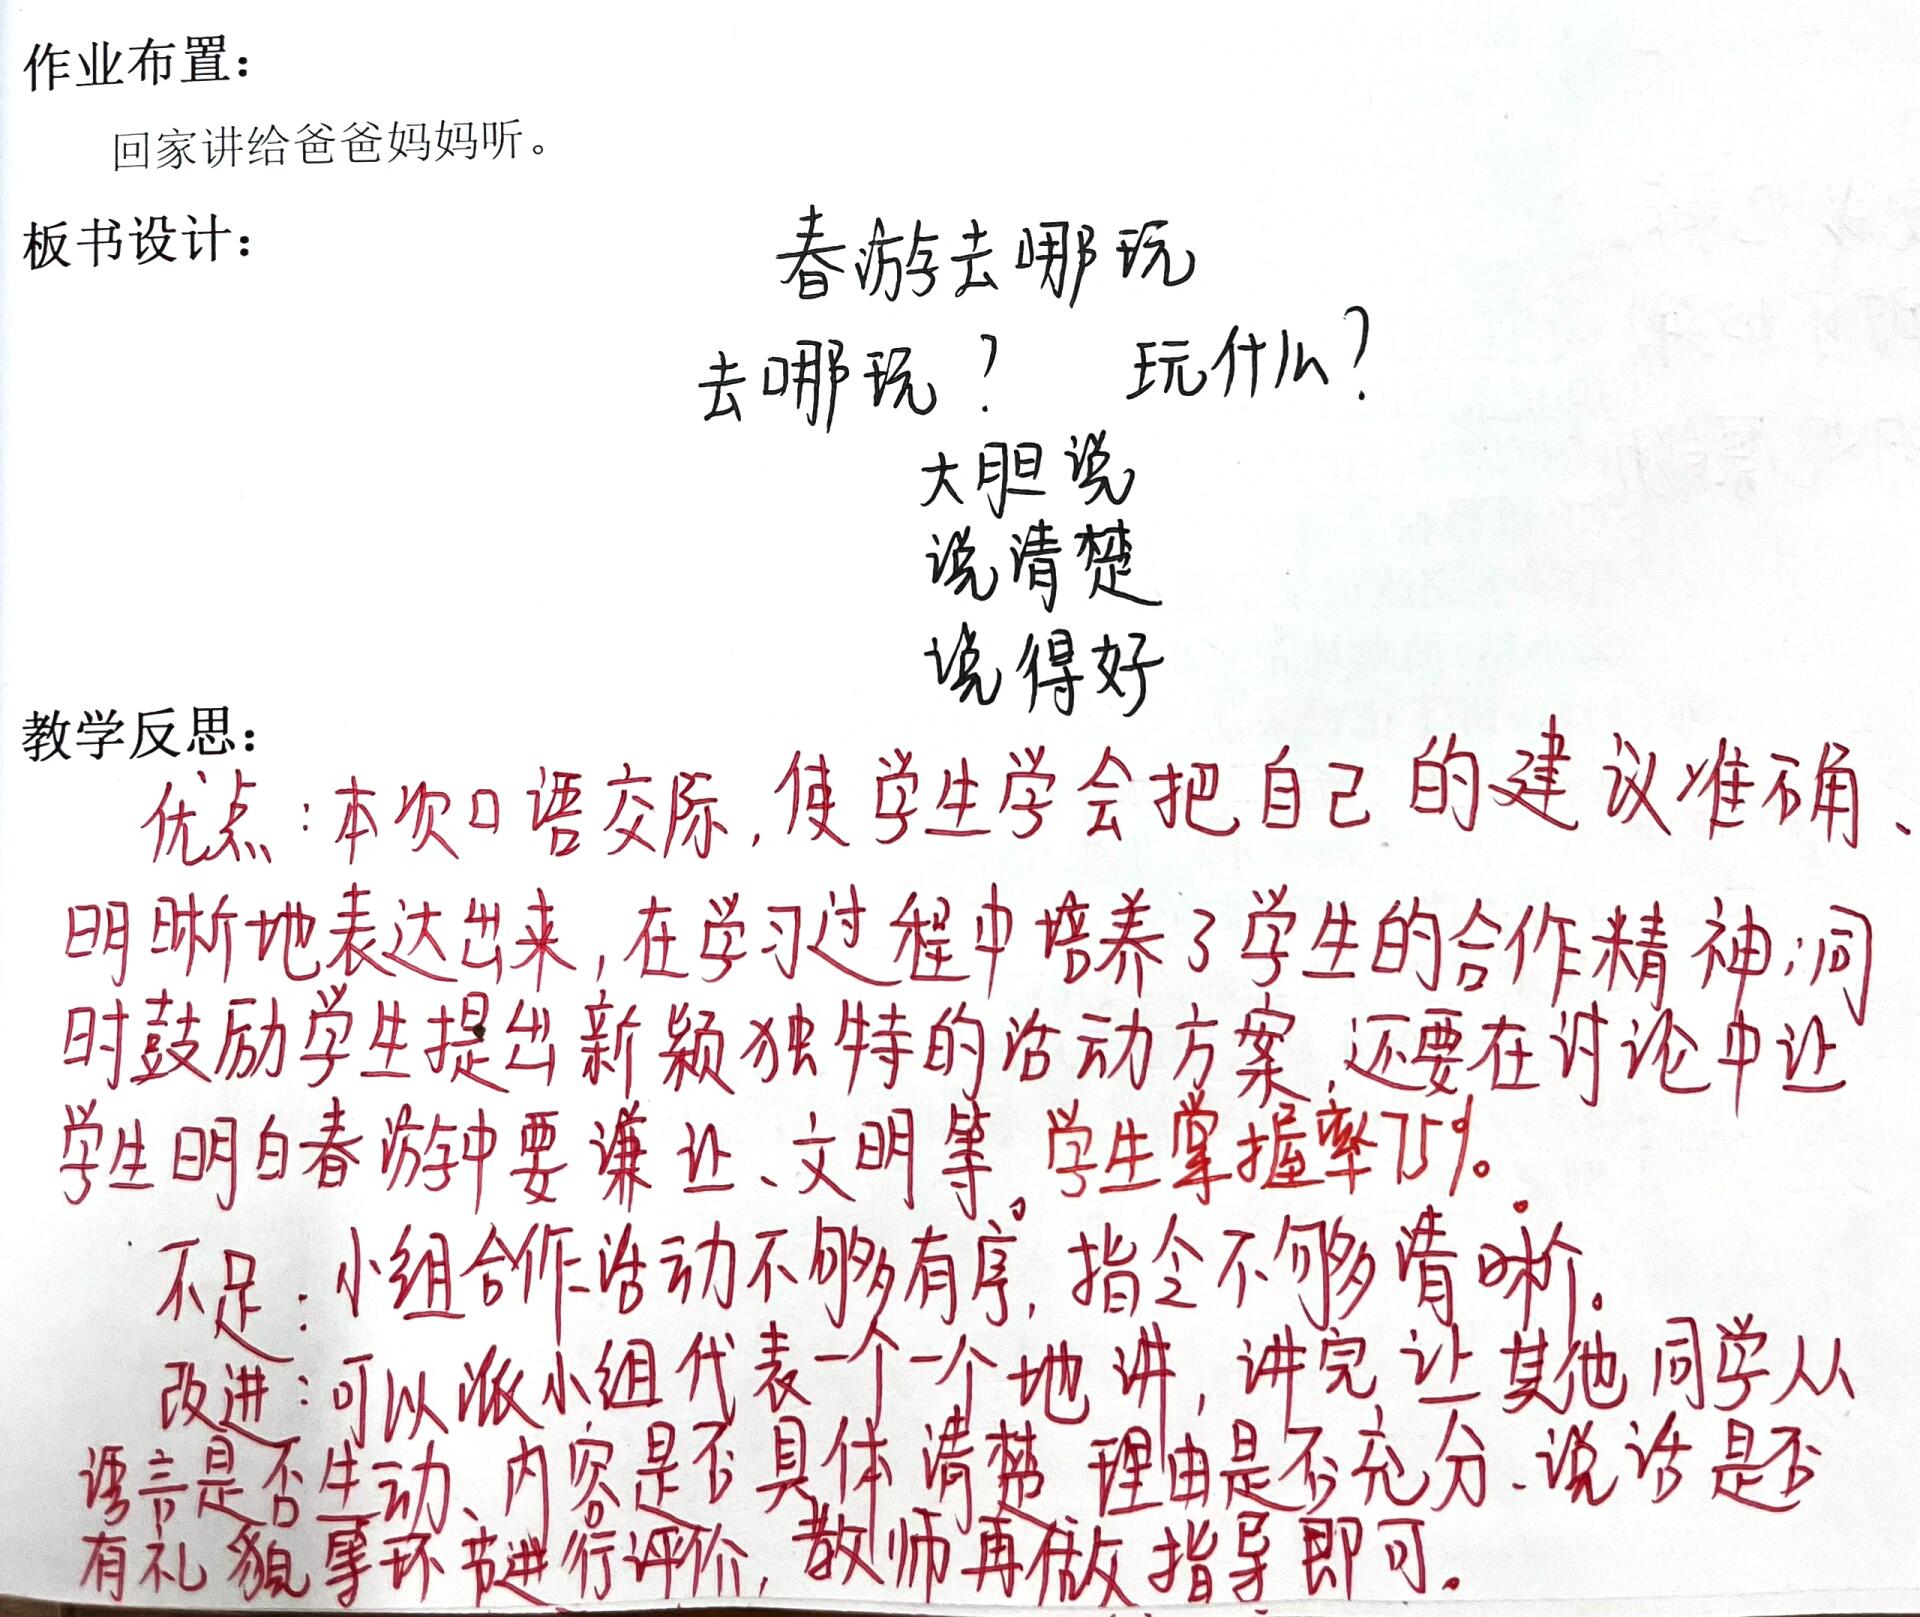 作业布置：
回家讲给爸爸妈妈听。
板书设计：
春游去哪玩
去哪玩？ 玩什么？
大胆说
说清楚
说得好
教学反思：
优点：本次口语交际，使学生学会把自己的建议准确、
明晰地表达出来，在学习过程中培养了学生的合作精神；同
时鼓励学生提出新颖独特的活动方案，还要在讨论中让
学生明白春游中要谦让、文明等。学生掌握率75%。
不足：小组合作活动不够有序，指令不够清晰。
改进：可以派小组代表一个一个地讲，讲完让其他同学从
语言是否生动、内容是否具体清楚、理由是否充分、说话是否
有礼貌等环节进行评价，教师再做指导即可。